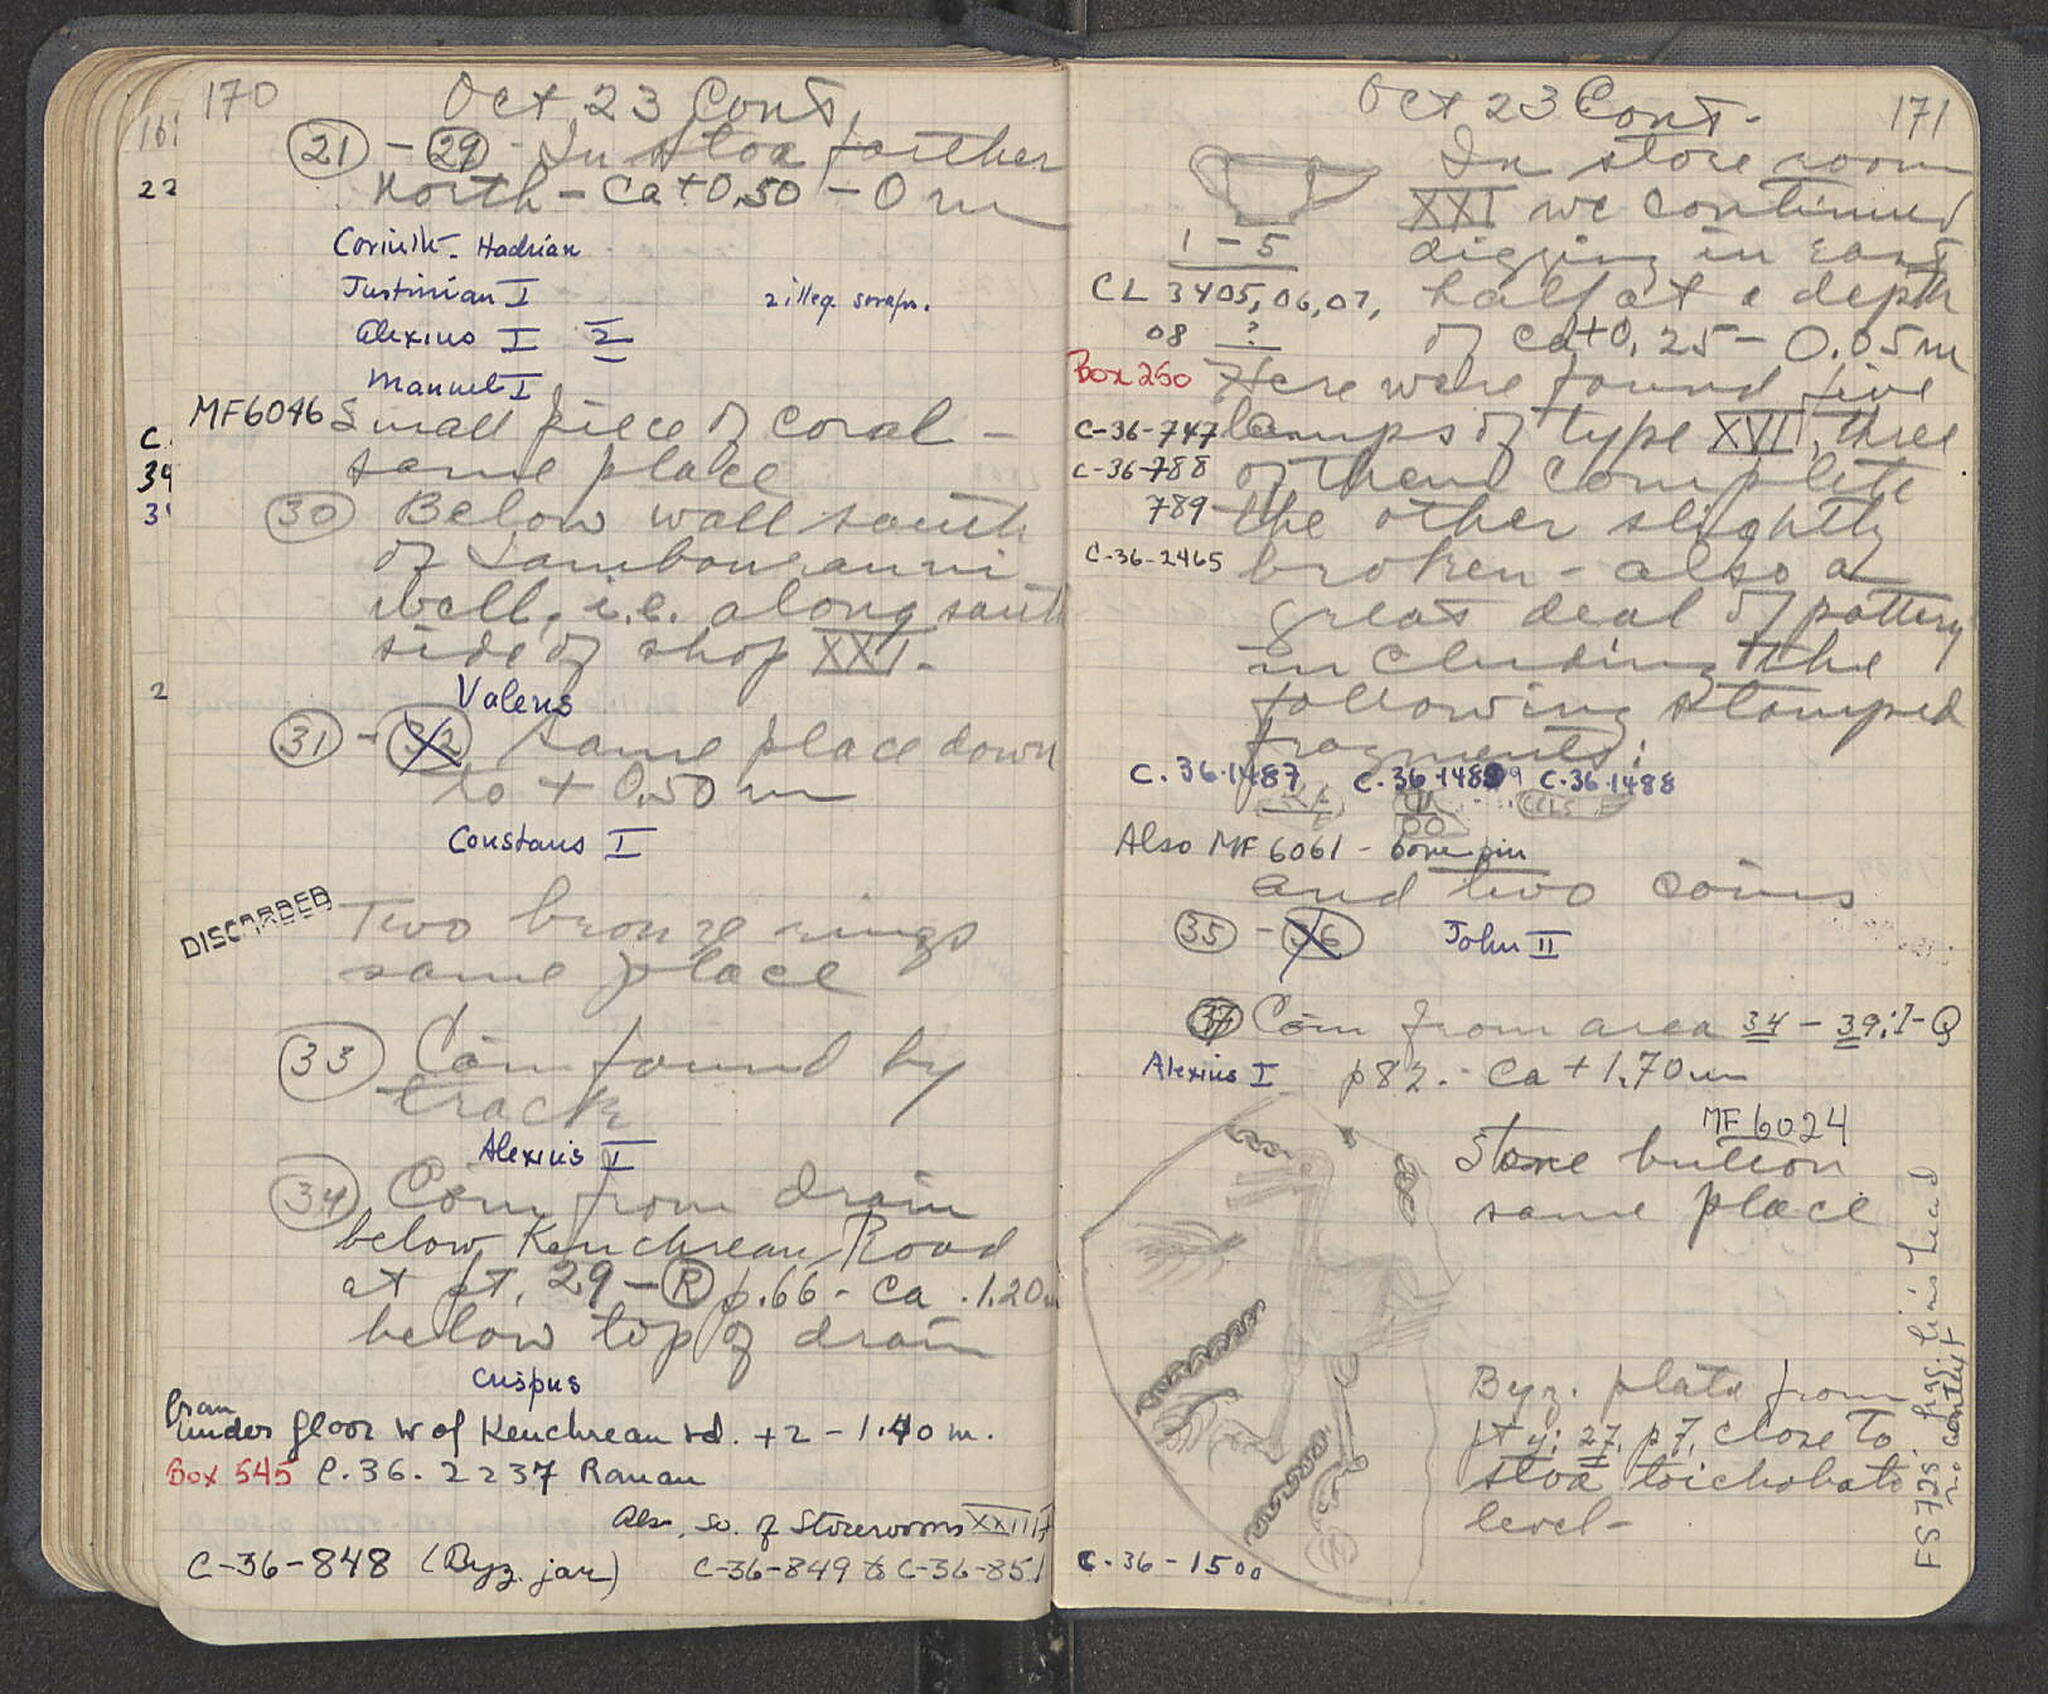 170
Oct 23 Cont.
21 - 29 - In stoa farther
North - ca +0.50 - 0 m
Corinth - Hadrian
Justinian I 2 illeg. scraps.
Alexius I 2
Manuel I
MF6046 Small piece of coral -
same place
30 Below wall south
of
well, i.e. along south
side of shop XXI.
Valens
31 - 32 Same place down
to + 0.50 m
Constans I
DISCARDED
Two bronze rings
same place
33 Coin found by
track
Alexius I
34 Coin from drain
below Kenchrean Road
at pt. 29 - R p.66 - ca. 1.20m
below top of drain
Crispus
From
under floor W of Kenchrean rd. +2 - 1.40 m.
Box 545 C.36.2237 Roman
Also, so. of Storerooms
C-36-848 (Byz. jar) C-36-849 to C-36-851
22
C.
34
2
Oct 23 Cont.
171
In store room
XXI we continued
digging in east
half at a depth
of ca +0.25 - 0.05m
1 - 5
CL 3405, 06, 07,
08 ?
Box 250 Here were found five
C-36-747 lamps of type XVI, three
C-36-788 of them complete
789 the other slightly
C-36-2465 broken - also a
great deal of pottery
including the
following stamped
fragments:
C.36.1487 C.36.1489 C.36.1488
Also MF 6061 - bone pin
and two coins
35 - 36 John II
37 Coin from area 34 - 39; I-Q
Alexius I p82. - Ca + 1.70m
MF 6024
Stone button
same place
Byz. plate from
pt y; 27, p 7, close to
stoa toichobate
level -
C.36-1500
FS 725. frag. lion's head
no context